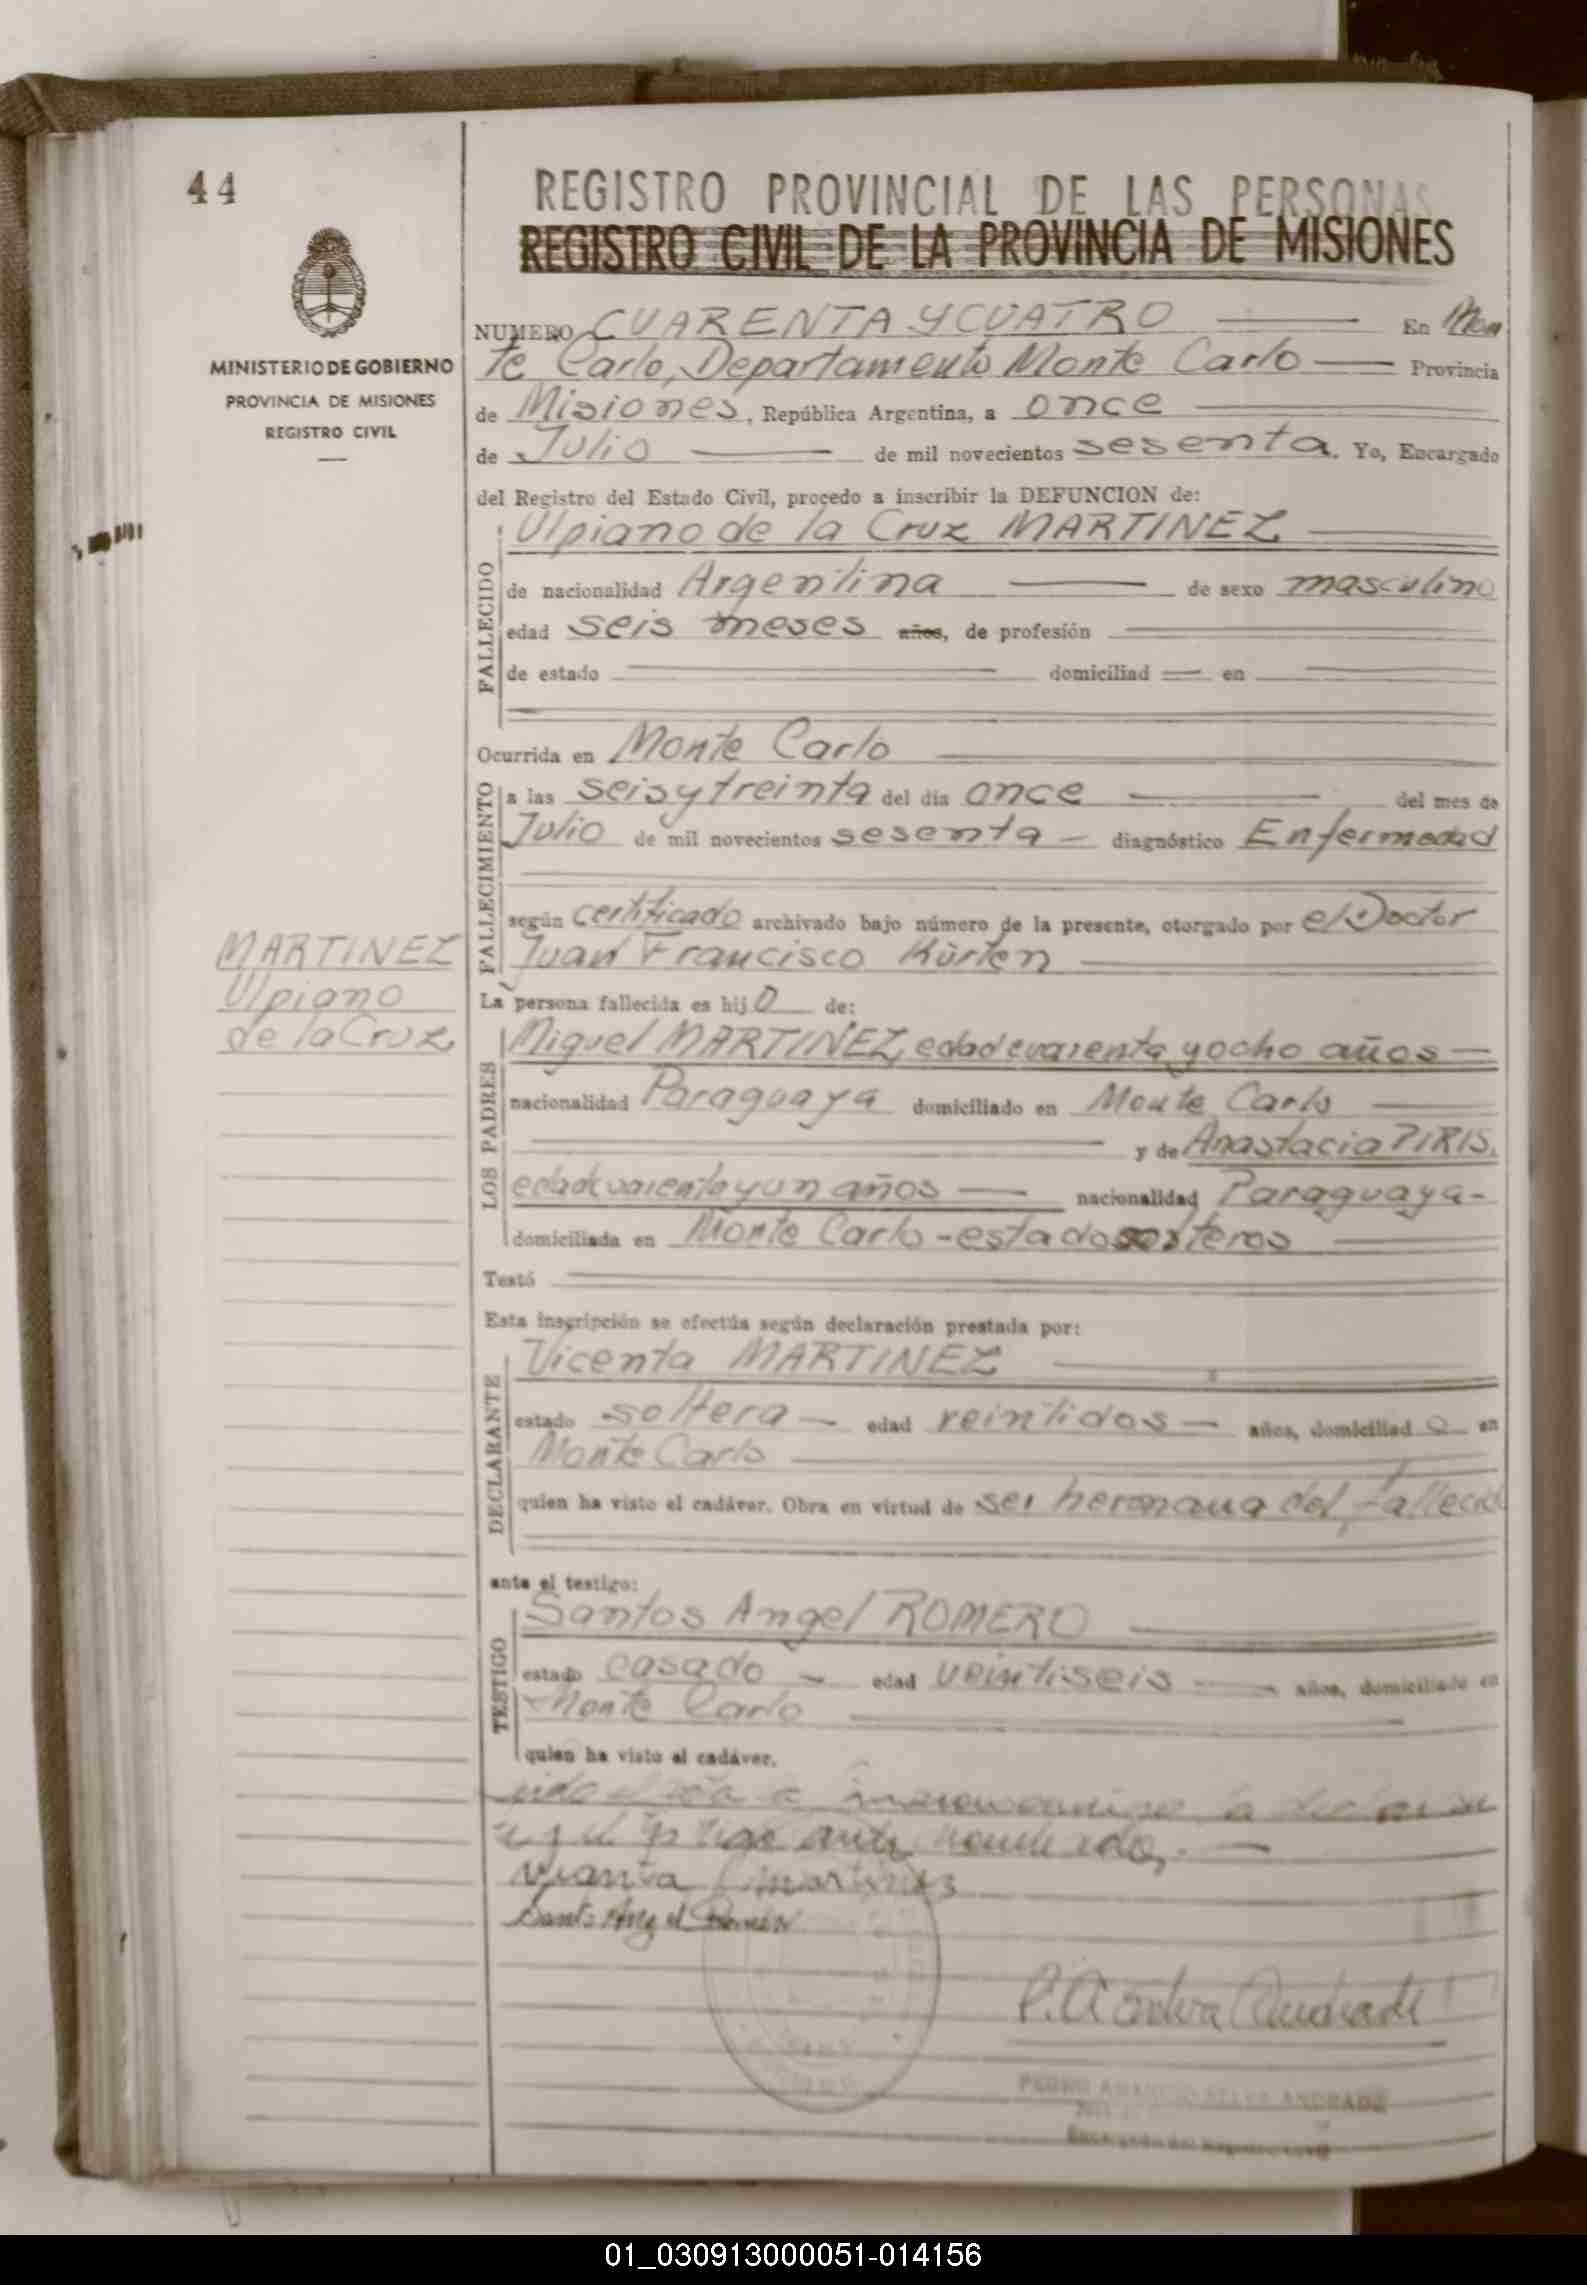 44
MINISTERIO DE GOBIERNO
PROVINCIA DE MISIONES
REGISTRO CIVIL
MARTINEZ
Ulpiano
de la Cruz
REGISTRO PROVINCIAL DE LAS PERSONAS
REGISTRO CIVIL DE LA PROVINCIA DE MISIONES
NUMERO CUARENTA Y CUATRO En Mon
te Carlo, Departamento Monte Carlo Provincia
de Misiones, República Argentina, a once
de Julio de mil novecientos sesenta. Yo, Encargado
del Registro del Estado Civil, procedo a inscribir la DEFUNCION de:
FALLECIDO
Ulpiano de la Cruz MARTINEZ
de nacionalidad Argentina de sexo masculino
edad seis meses años, de profesión
de estado domiciliad en
Ocurrida en Monte Carlo
FALLECIMIENTO
a las seis y treinta del día once del mes de
Julio de mil novecientos sesenta diagnóstico Enfermedad
según certificado archivado bajo número de la presente, otorgado por el Doctor
Juan Francisco Kürten
La persona fallecida es hijo de:
LOS PADRES
Miguel MARTINEZ, edad cuarenta y ocho años
nacionalidad Paraguaya domiciliado en Monte Carlo
y de Anastacia PIRIS,
edad cuarenta y un años nacionalidad Paraguaya-
domiciliada en Monte Carlo - estado solteros
Testó
Esta inscripción se efectúa según declaración prestada por:
DECLARANTE
Vicenta MARTINEZ
estado soltera edad veintidos años, domiciliad a en
Monte Carlo
quien ha visto el cadáver. Obra en virtud de ser hermana del fallecid
ante el testigo:
TESTIGO
Santos Angel ROMERO
estado casado edad veintiseis años, domiciliado en
Monte Carlo
quien ha visto el cadáver.
y el testigo ante nombrado,
martines
Santo Angel Romero
P. A Andrade
PEDRO ANDRADE
Encargado del Registro Civil
01_030913000051-014156